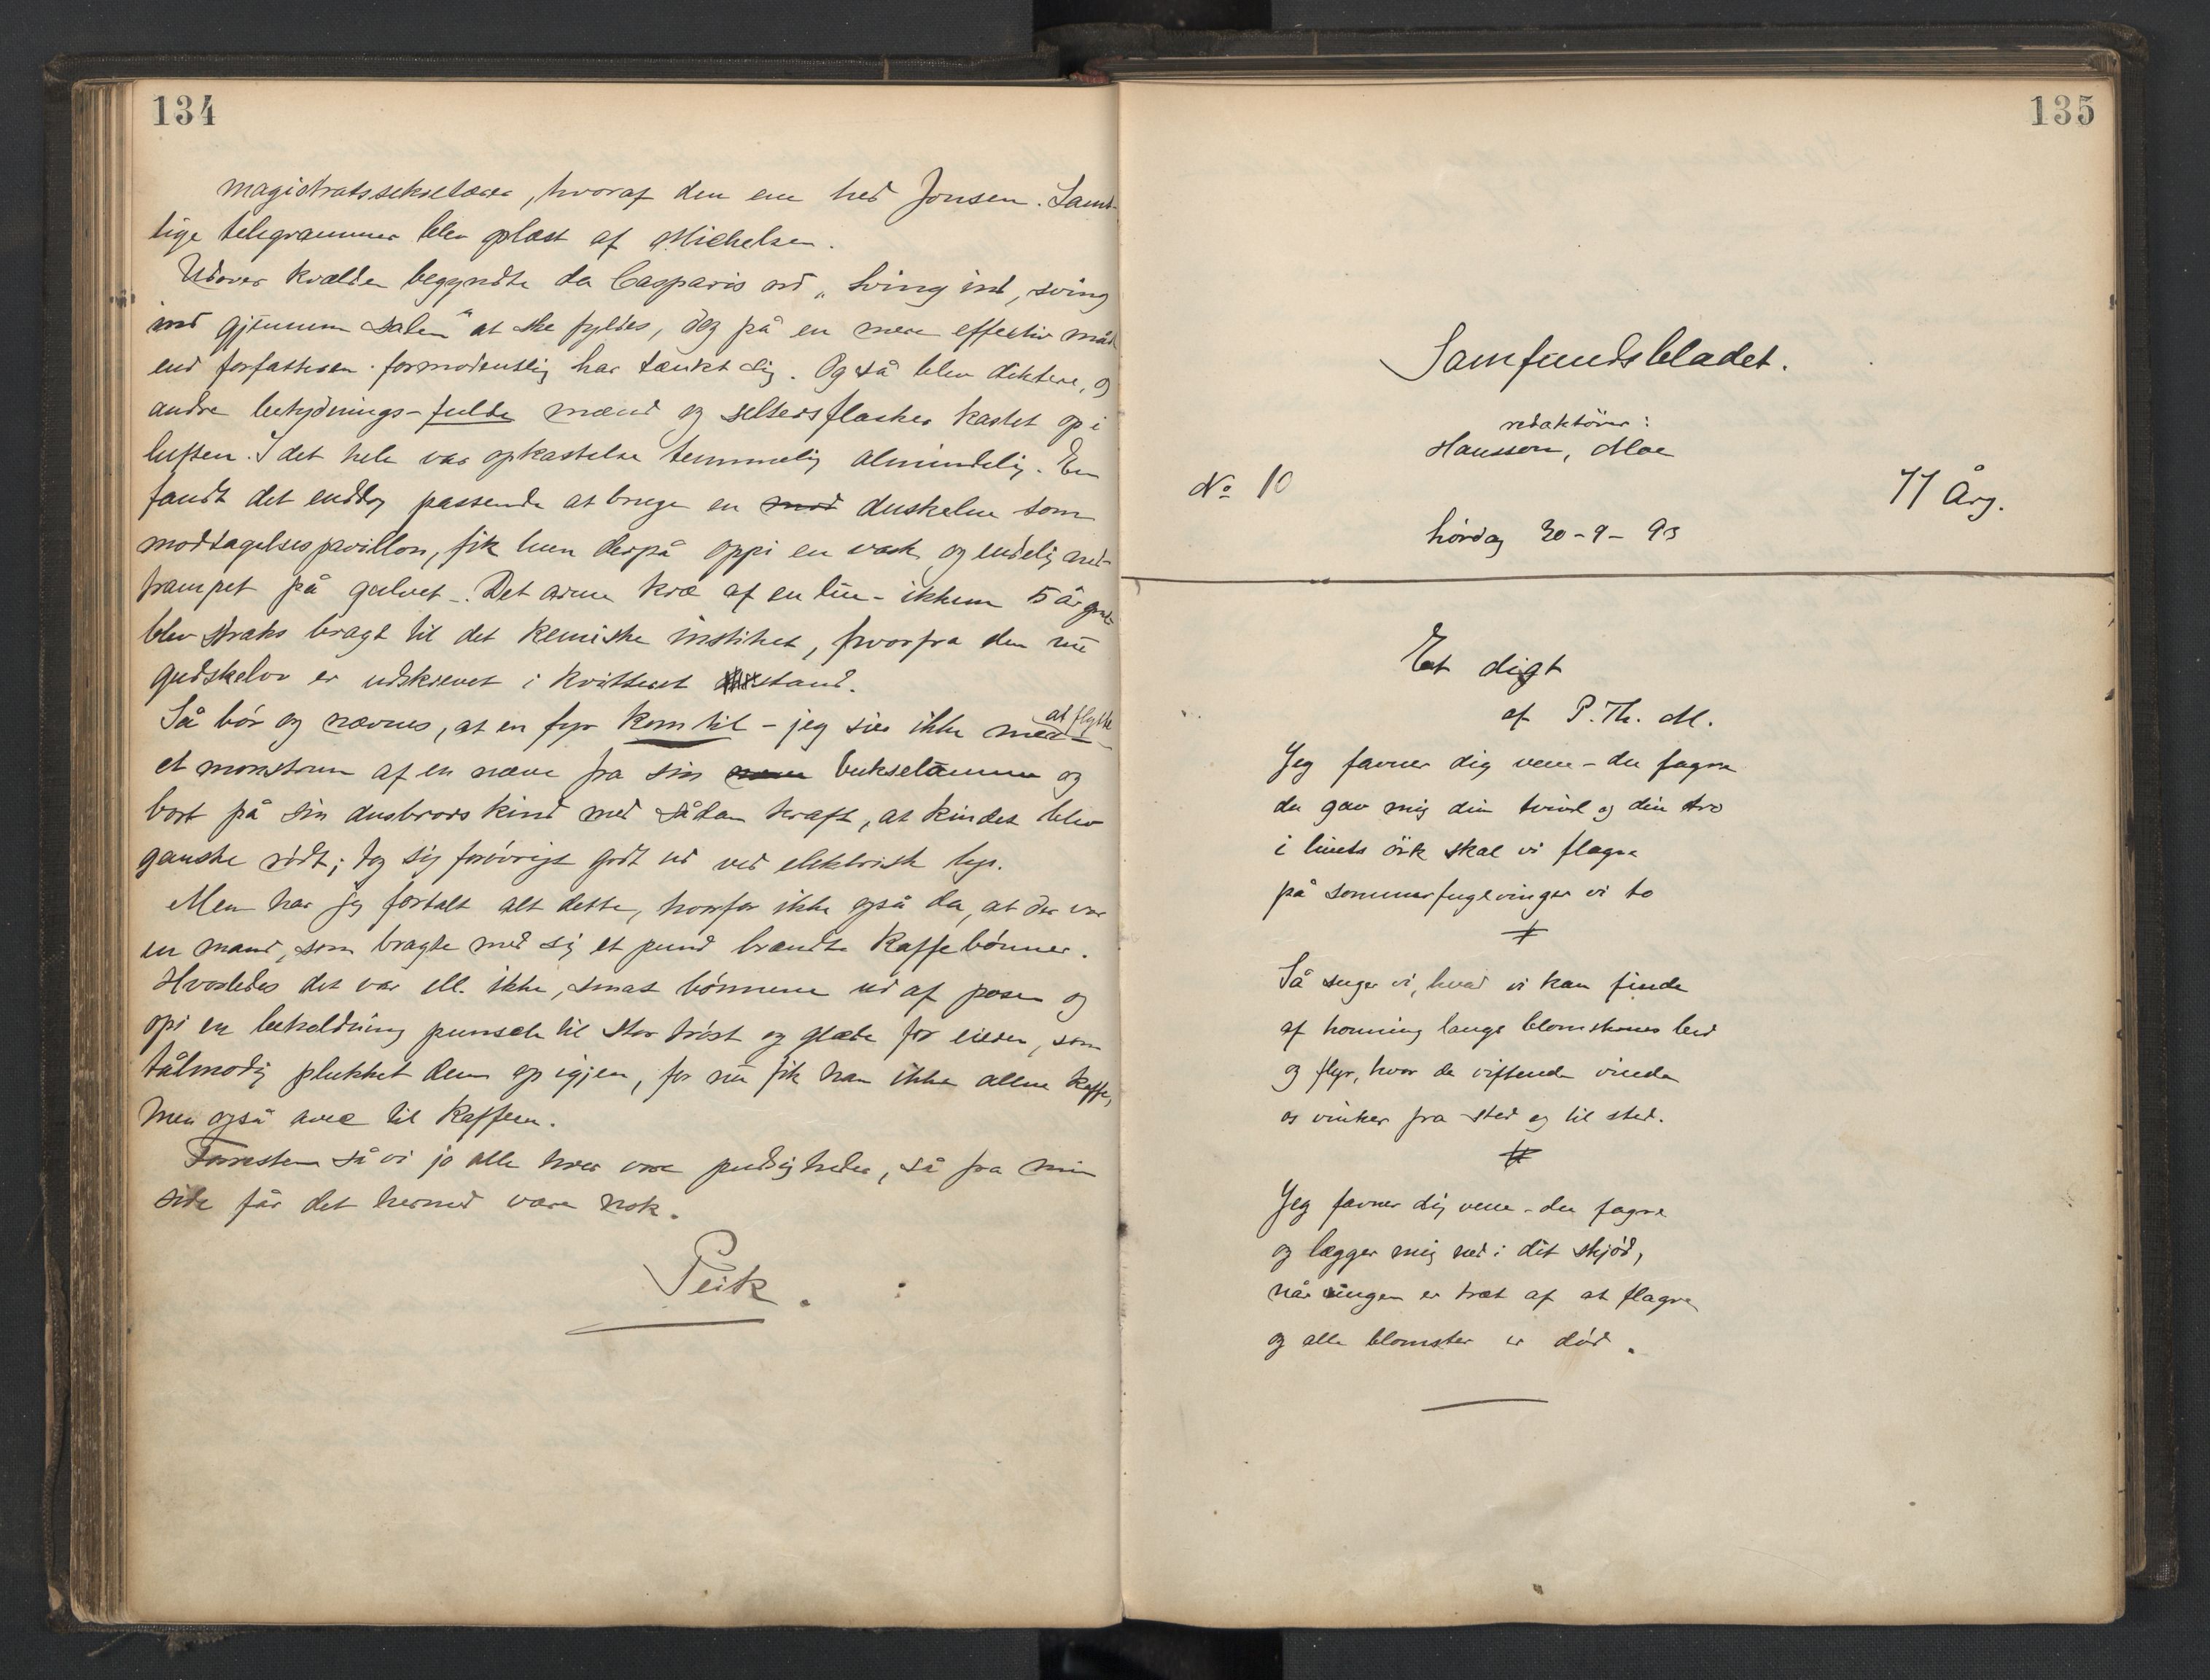 134
magistratssekretærer, hvoraf den ene hed Jonsen. Samt-
lige telegrammer blev oplæst af Michelsen.
Udover kvælden begyndte da Casparis ord „sving ind, sving
ind gjennem salen" at ske fyldes, dog på en mere effectiv måde
end forfatteren formodentlig har tænkt sig. Og så blev diktere, og
andre betydnings-fulde mænd og seltersflasker kastet op i
luften. I det hele var opkastelse temmelig almindelig. En
fandt det enddog passende at bruge en duskelue som
modtagelsespavillon, fik luen derpå oppi en vask og endelig ned-
trampet på gulvet. Det arme kræ af en lue - ikkun 5 år gml
blev straks bragt til det kemiske institut, hvorfra den nu
gudskelov er udskrevet i kvitteret stand.
Så bör og nævnes, at en fyr kom til - jeg sier ikke mer - at flytte
et monstrum af en næve fra sin bukselomme og
bort på sin dusbrors kind med sådan kraft, at kindet blev
ganske rödt; tog sig forövrigt godt ud ved elektrisk lys.
Men har jeg fortalt alt dette, hvorfor ikke også da, at der var
en mand, som bragte med sig et pund brændte kaffebönner.
Hvorledes det var ell. ikke, smat bönnerne ud af posen og
opi en beholdning punsch til stor tröst og glæde for eieren, som
tålmodig plukket dem op igjen, for nu fik han ikke alene kaffe,
men også avec til kaffeen.
Forresten så vi jo alle hver vore pudsigheder, så fra min
side får det hermed være nok.
Peik.
135
Samfundsbladet.
redaktörer:
Hansson, Moe
No 10
77 Årg.
lördag 30-9-93
Et digt
af P. Th. M.
Jeg favner dig vene - du fagre
du gav mig din tvivl og din tro
i livets örk skal vi flagre
på sommerfuglvinger vi to
Så suger vi, hvad vi kan finde
af honning langs blomsternes bed
og flyr, hvor de viftende vinde
os vinker fra sted og til sted.
Jeg favner dig vene - du fagre
og lægger mig ned i dit skjöd,
når vingen er træt af at flagre
og alle blomster er död.